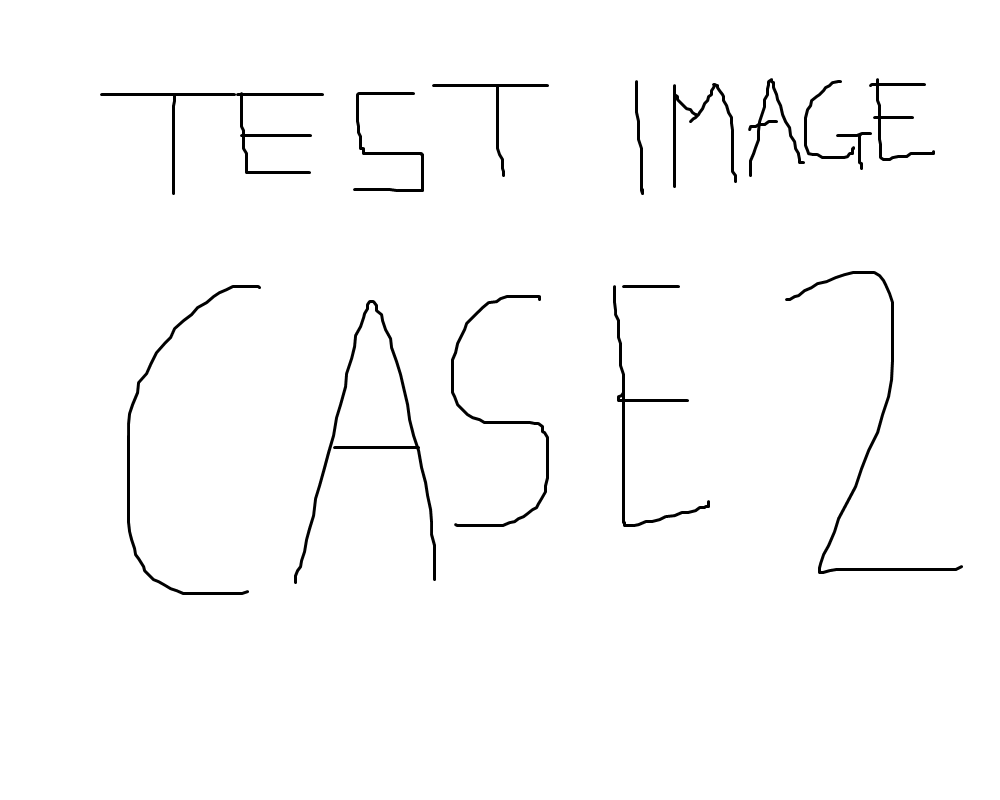 TEST IMAGE
CASE 2